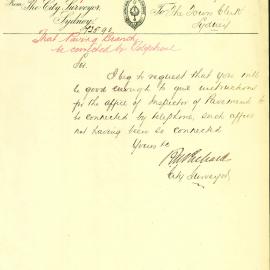 From The City Surveyor,
Sydney,
To The Town Clerk
Sydney
That Paving Branch
be connected by Telephone
Sir,
I beg to request that you will
be good enough to give instructions
for the office of Inspector of Pavements to
be connected by telephone, such office
not having been so connected
Yours &c
City Surveyor